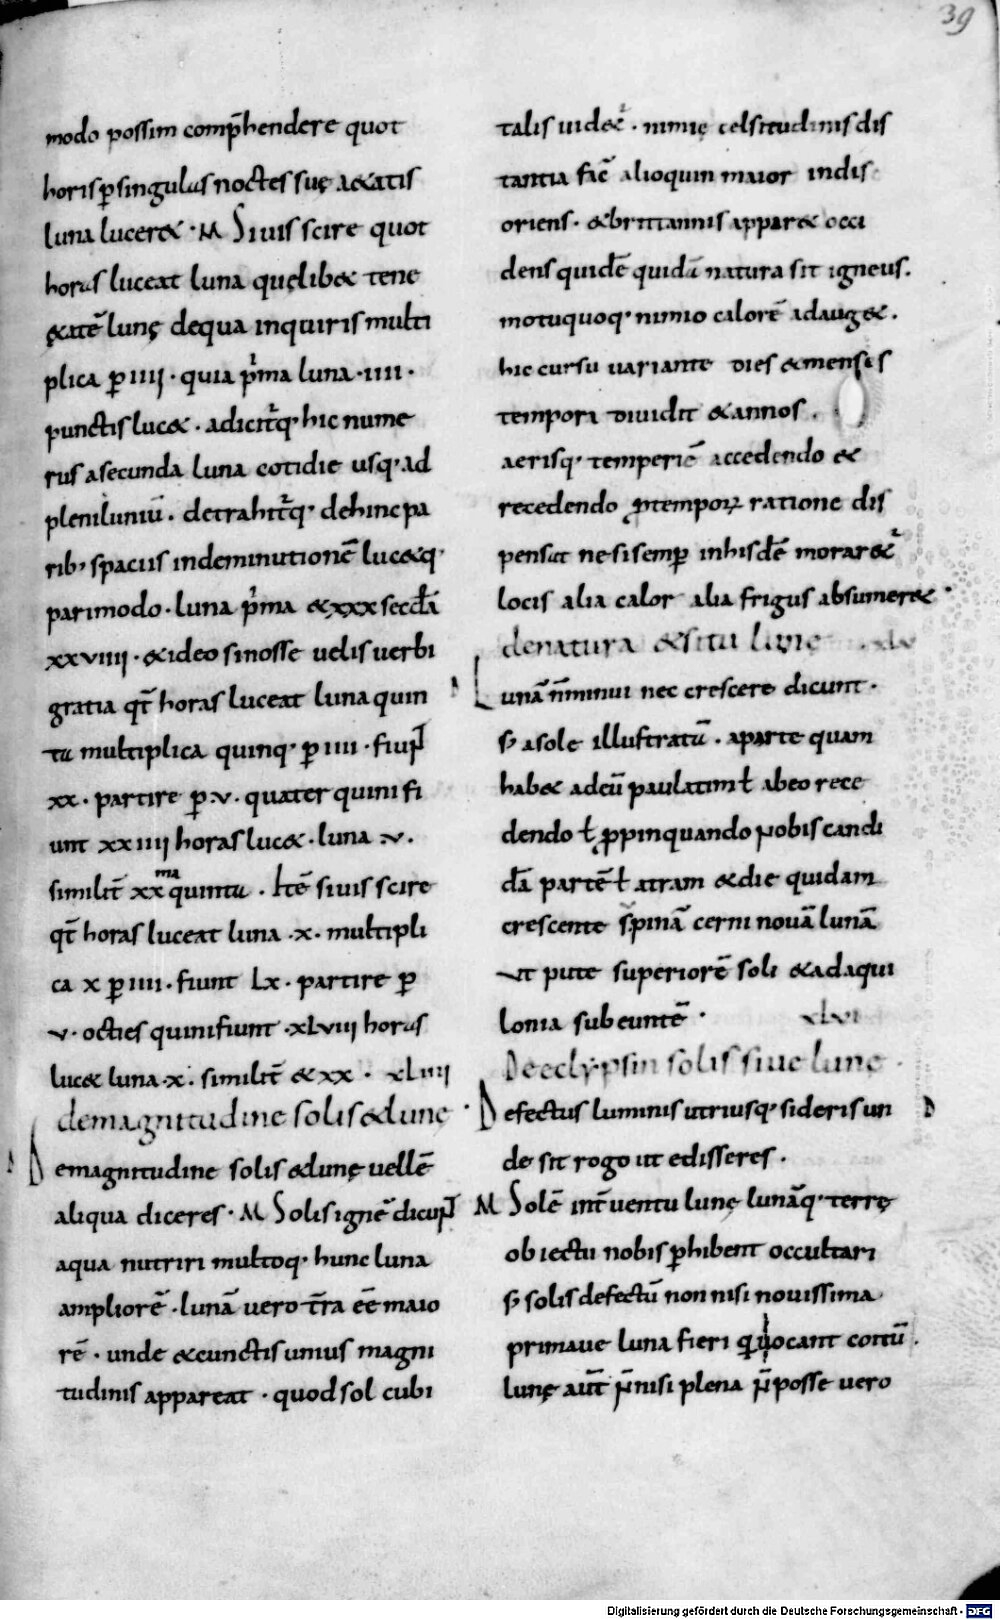 39
modo possim comp̄hendere quot
horis ꝑsingulas noctes suę &atis
luna lucer& · M Si uis scire quot
horas luceat luna quęlib& tene
ętatē lunę dequa inquiris multi
plica ꝑ iiii · quia p̍ma luna · iiii ·
punctis luc& · adicit̄q· hic nume
rus asecunda luna cotidie usq· ad
pleniluniū · detrahit̄q· dehinc pa
rib; spaciis indeminutionē luc&q·
parimodo · luna p̍ma & xxx secd̄ā
xxviiii · & ideo sinosse uelis uerbi
gratia qt̄ horas luceat luna quin
ta multiplica quinq· ꝑ iiii · fiuɴ̄
xx · partire ꝑ · v · quater quini fi
unt xx iiii horas luc& · luna · v ·
similit̄ xxma quinta · Itē siuis scire
qt̄ horas luceat luna · x · multipli
ca x ꝑ iiii · fiunt Lx · partire ꝑ
v · octies quini fiunt · xLviii horas
luc& luna · x · similit̄ & xx · xLiiii
de magnitudine solis & lunę ·
D emagnitudine solis & lunę uellē
aliqua diceres · M Solis ignē dicuɴ̄
aqua nutriri multoq· hunc luna
ampliorē · lunā uero t̄ra eē maio
rē · unde & cunctis unius magni
tudinis appareat · quod sol cubi
talis uide&̍ · nimię celsitudinis dis
tantia fac̄ alioquin maior indis
oriens · & brittannis appar& occi
dens quidē quidā natura sit igneus.
motuquoq· nimio calorē adaug& .
hic cursu uariante dies & menses
tempora diuidit & annos .
aerisq· temperiē accedendo &
recedendo ꝓtemporꝝ ratione dis
pensat ne si semꝑ inhisdē morar&̍
locis alia calor alia frigus absumer& ·
de natura & situ lunę xLv
L unā n̄minui nec crescere dicunt ·
s; a sole illustratū · aparte quam
hab& adeū paulatim ł abeo rece
dendo ł ꝓpinquando nobis candi
dā partē ł atram & die quidam
crescente supinā cerni nouā lunā
vt pute superiorē soli & ad aqui
lonia subeuntē · xLvi
De eclypsin solis siue lunę ·
D efectus luminis utriusq· sideris un D
de sit rogo ut edisseres ·
M Solē int̄uentu lunę lunāq· terrę
obiectu nobis ꝑhibent occultari
s; solis defectū non nisi nouissima
primaue luna fieri q̄ uocant coitū .
lunę aut̄ n̄nisi plena n̄posse uero
Digitalisierung gefördert durch die Deutsche Forschungsgemeinschaft · DFG